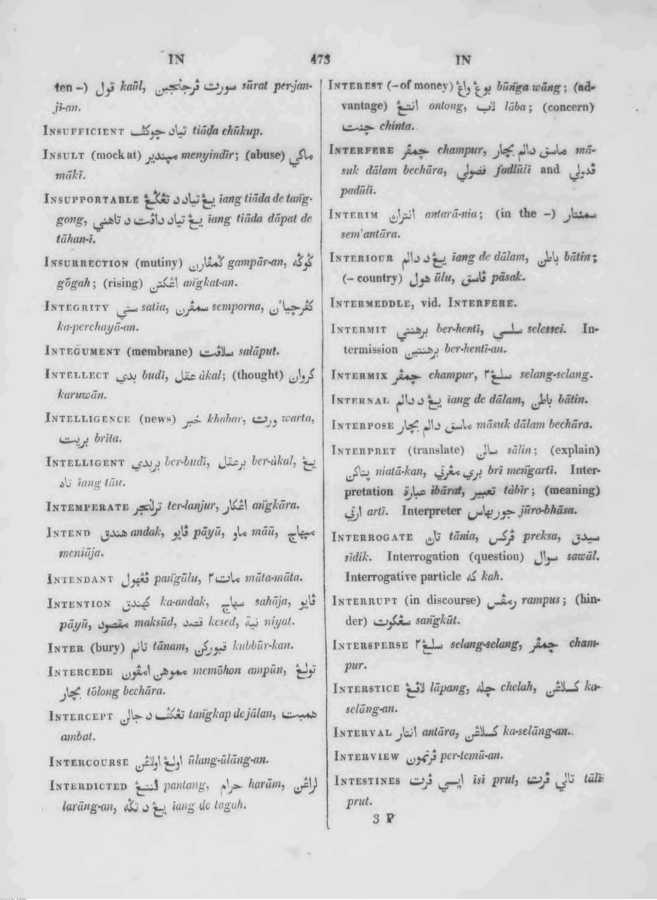 IN 473 IN
ten -) قول kaūl, سورت ڤرجنجين sūrat per-jan-
ji-an.
INSUFFICIENT تياد چوكڤ tiāda chūkup.
INSULT (mock at) مڽندير menyindir; (abuse) ماكي
māki.
INSUPPORTABLE يڠ تياد د تڠݢڠ iang tiāda de tang-
gong, يڠ تياد داڤت د تاهني iang tiāda dāpat de
tāhan-i.
INSURRECTION (mutiny) ڬمڤارن gampār-an, ڬوڬه
gōgah; (rising) اڠكتن angkat-an.
INTEGRITY ستي satia, سمڤرن semporna,
ka-perchayā-an.
INTEGUMENT (membrane) سلاڤت salāput.
INTELLECT بدي budi, عقل ākal; (thought) كروان
karuwān.
INTELLIGENCE (news) خبر khabar, ورت warta,
بريت brita.
INTELLIGENT بربدي ber-budi, برعقل ber-ākal, يڠ
تاه iang tāu.
INTEMPERATE ترلنجر ter-lanjur, اڠكار angkāra.
INTEND هندق andak, ڤايو pāyū, ماو māū, مڽهاج
meniāja.
INTENDANT ڤڠهول pangūlu, مات٢ māta-māta.
INTENTION كهندق ka-andak, سهاج sahāja, ڤايو
pāyū, مقصود maksūd, قصد kesed, نية niyat.
INTER (bury) تانم tānam, قبوركن kubbūr-kan.
INTERCEDE مموهن امڤون memūhon ampūn, تولڠ
بچار tōlong bechāra.
INTERCEPT تڠكڤ د جالن tangkap de jālan, همبت
ambat.
INTERCOURSE اولڠ اولاڠن ūlang-ūlāng-an.
INTERDICTED ڤنتڠ pantang, حرام harām, لراڠن
larāng-an, يڠ د تڬه iang de tagah.
INTEREST (- of money) بوڠ واڠ būnga wāng; (ad-
vantage) انتڠ ontong, لاب lāba; (concern)
چنت chinta.
INTERFERE چمڤر champur, ماسق دالم بچار mā-
suk dālam bechāra, فضولي fadlūli and ڤدولي
padūli.
INTERIM انتران antarā-nia; (in the -) سمنتار
sem'antāra.
INTERIOUR يڠ د دالم iang de dālam, باطن bātin;
(- country) هول ūlu, ڤاسق pāsak.
INTERMEDDLE, vid. INTERFERE.
INTERMIT برهنتي ber-henti, سلسي selessei. In-
termission برهنتين ber-henti-an.
INTERMIX چمڤر champur, سلڠ٢ selang-selang.
INTERNAL يڠ د دالم iang de dālam, باطن bātin.
INTERPOSE ماسق دالم بچار māsuk dālam bechāra.
INTERPRET (translate) سالن sālin; (explain)
ڽتاكن niatā-kan, بري مڠرتي bri mengarti. Inter-
pretation عبارة ibārat, تعبير tābir; (meaning)
ارتي arti. Interpreter جوربهاس jūro-bhāsa.
INTERROGATE تان tānia, ڤركس preksa, سيدق
sīdik. Interrogation (question) سوال sawāl.
Interrogative particle كه kah.
INTERRUPT (in discourse) رمڤس rampus; (hin-
der) سڠكوت sangkūt.
INTERSPERSE سلڠ٢ selang-selang, چمڤر cham-
pur.
INTERSTICE لاڤڠ lāpang, چله chelah, كسلاڠن ka-
selāng-an.
INTERVAL انتار antāra, كسلاڠن ka-selāng-an.
INTERVIEW ڤرتمون per-temū-an.
INTESTINES ايسي ڤرت isi prut, تالي ڤرت tāli
prut.
3 P